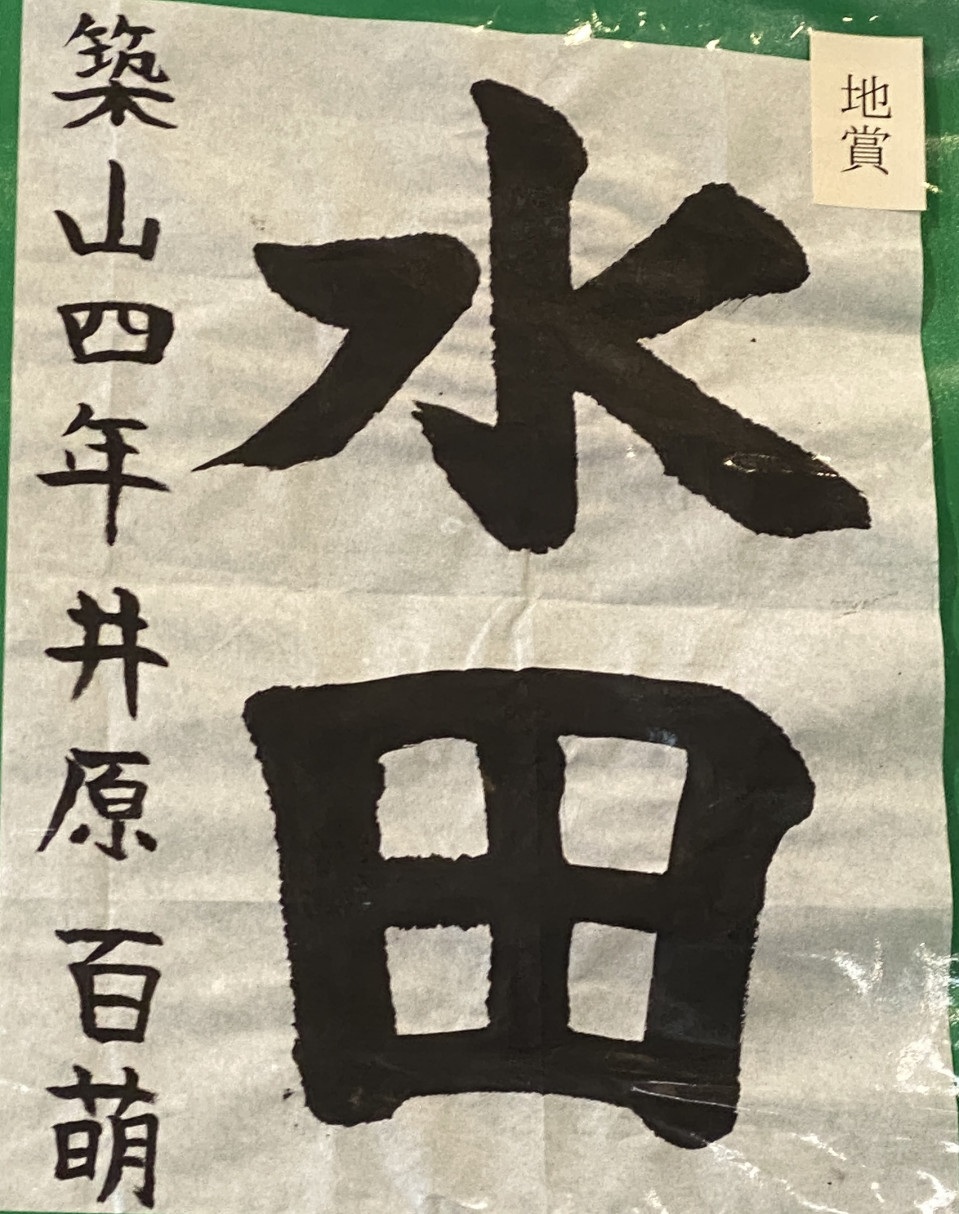 地賞
水田
築山四年 井原 百萌